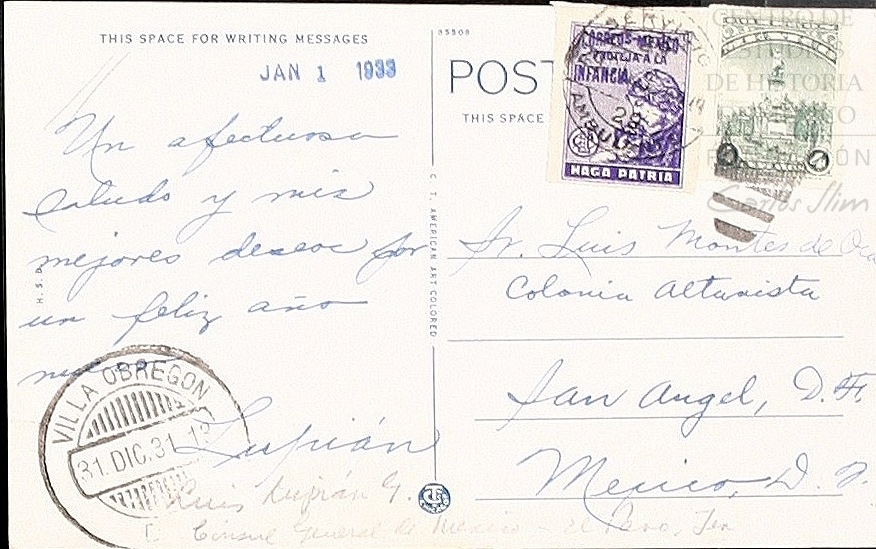 THIS SPACE FOR WRITING MESSAGES
JAN 1 1933
Un afectuoso
saludo y mis
mejores deseos por
un feliz año
Lupián
VILLA OBREGON
31. DIC. 31
Luis Lupián G.
Consul General de Mexico - El Paso, Tex
H. S. B.
C. T. AMERICAN ART COLORED
POST
THIS SPACE
SERVICIO
AMBULANTE
28
CORREOS-MEXICO
PROTEJA A LA
INFANCIA
HAGA PATRIA
CENTRO DE
ESTUDIOS
DE HISTORIA
DE MEXICO
FUNDACIÓN
Carlos Slim
Sr. Luis Montes de Oca
Colonia Altavista
San Angel, D. F.
Mexico, D. F.